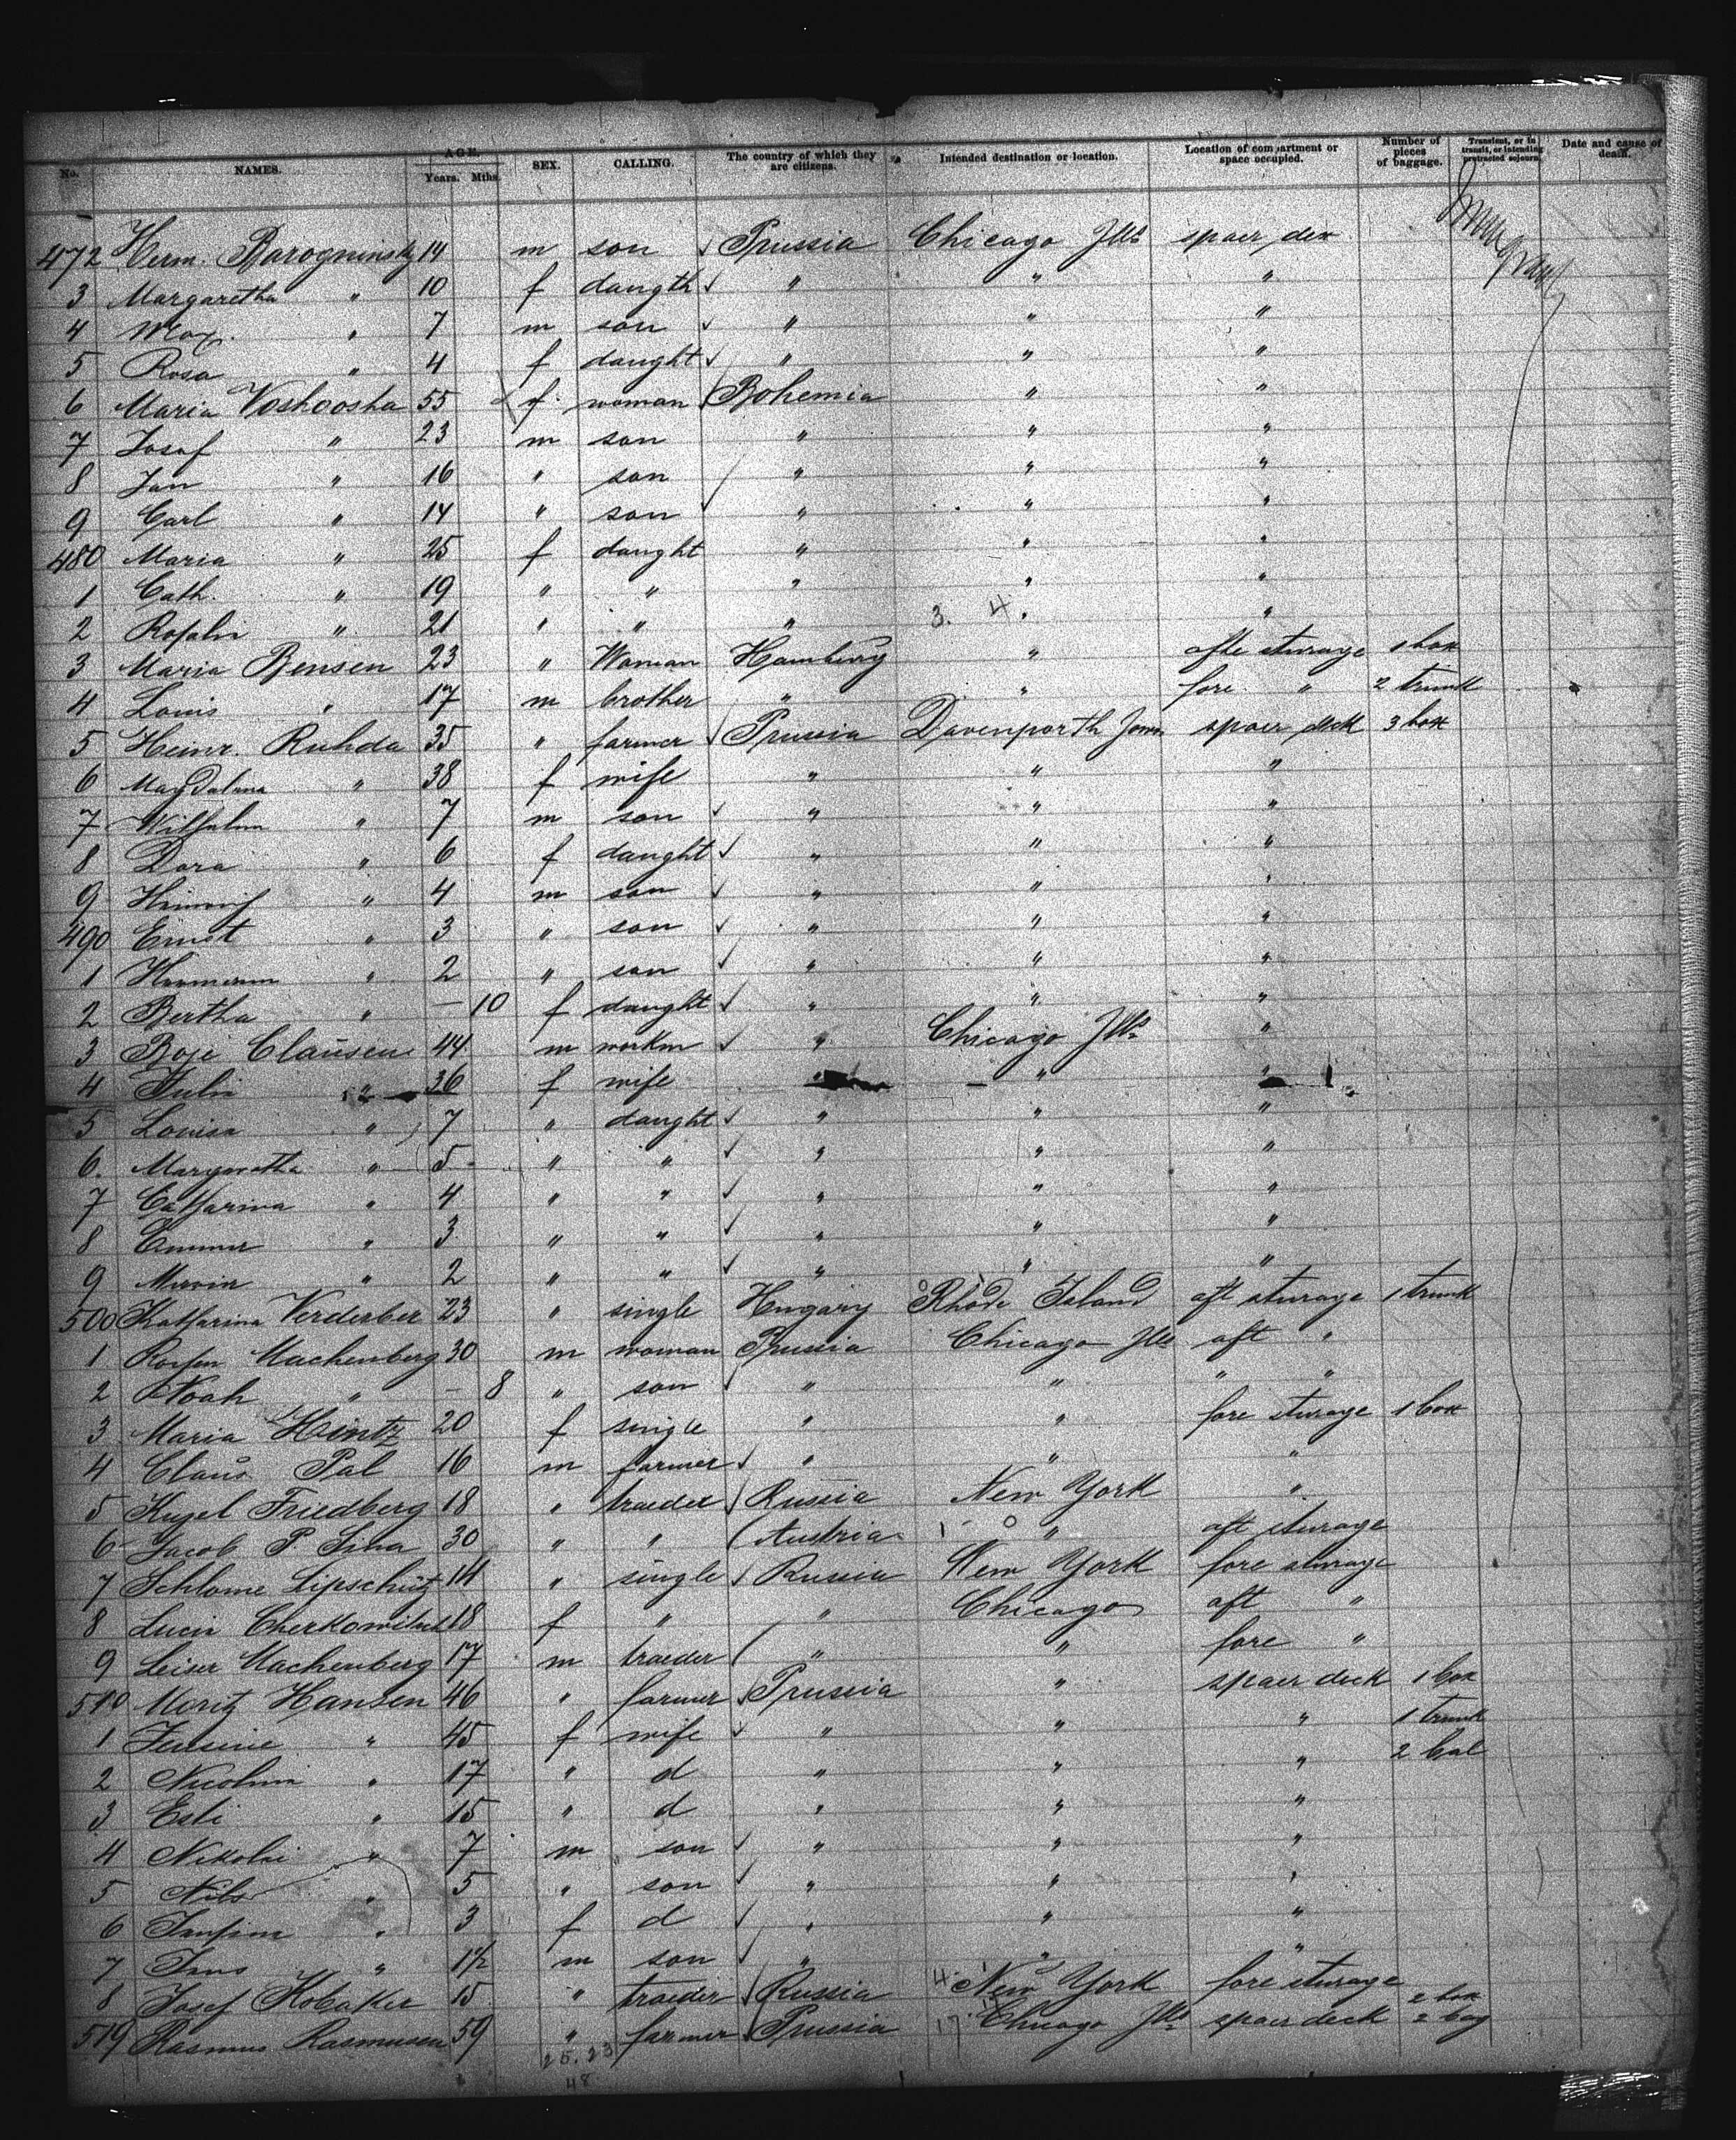 No. NAMES. AGE. Years. Mths. SEX. CALLING. The country of which they are citizens. Intended destination or location. Location of compartment or space occupied. Number of pieces of baggage. Transient, or in transit, or intending protracted sojourn. Date and cause of death.
472 Herm. 14 m son Prussia Chicago Ills spaer dek
3 Margaretha " 10 f daugth " " "
4 Max " 7 m son " " "
5 Rosa " 4 f daught " " "
6 Maria Voshoosha 55 f. woman Bohemia " "
7 Josef " 23 m son " " "
8 Jan " 16 " son " " "
9 Carl " 14 " son " " "
480 Maria " 25 f daught " " "
1 Cath. " 19 " " " " "
2 Rosalie " 21 " " " 3. 4 " "
3 Maria Bensen 23 " Woman Hamburg " afte sturage 1 box
4 Louis " 17 m brother " " fore " 2 trunk
5 Heinr. Ruhda 35 " farmer Prussia Davenporth Jowa spaer deck 3 box
6 Magdalena " 38 f wife " " "
7 Wilhelm " 7 m son " " "
8 Dora " 6 f daught " " "
9 Heinrich " 4 m son " " "
490 Ernst " 3 " son " " "
1 Hermann " 2 " son " " "
2 Bertha " — 10 f daught " " "
3 Boje Clausen 44 m workm " Chicago Ills "
4 Julie " 36 f wife " " "
5 Louisa " 7 " daught " " "
6. Margaretha " 5 " " " " "
7 Catharina " 4 " " " " "
8 " 3 " " " " "
9 " 2 " " " " "
500 Katharina Verderber 23 " single Hungary Rhode Island aft sturage 1 trunk
1 Machenberg 30 m woman Prussia Chicago Ills aft "
2 Noah " — 8 " son " " " "
3 Maria Hintz 20 f single " " fore sturage 1 box
4 Claus Pal 16 m farmer " " "
5 Friedberg 18 " traeder Russia New York "
6 Jacob P. 30 " " Austria 1 0 " aft sturage
7 Schlome Lipschütz 14 " single Russia New York fore sturage
8 Lucia 18 f " " Chicago aft "
9 Leiser Machenberg 17 m traeder " " fore "
510 Moritz Hansen 46 " farmer Prussia " spaer deck 1 box
1 " 45 f wife " " " 1 trunk
2 " 17 " d " " " 2 bal
3 " 15 " d " " "
4 Nikolai " 7 m son " " "
5 Nils " 5 " son " " "
6 " 3 f d " " "
7 " 1½ m son " " "
8 Josef Kobaker 15 " traeder Russia 4 New York fore sturage
519 Rasmus Rasmusen 59 " farmer Prussia 17 Chicago Ills spaer deck 2 box 2 bag
25. 23
48